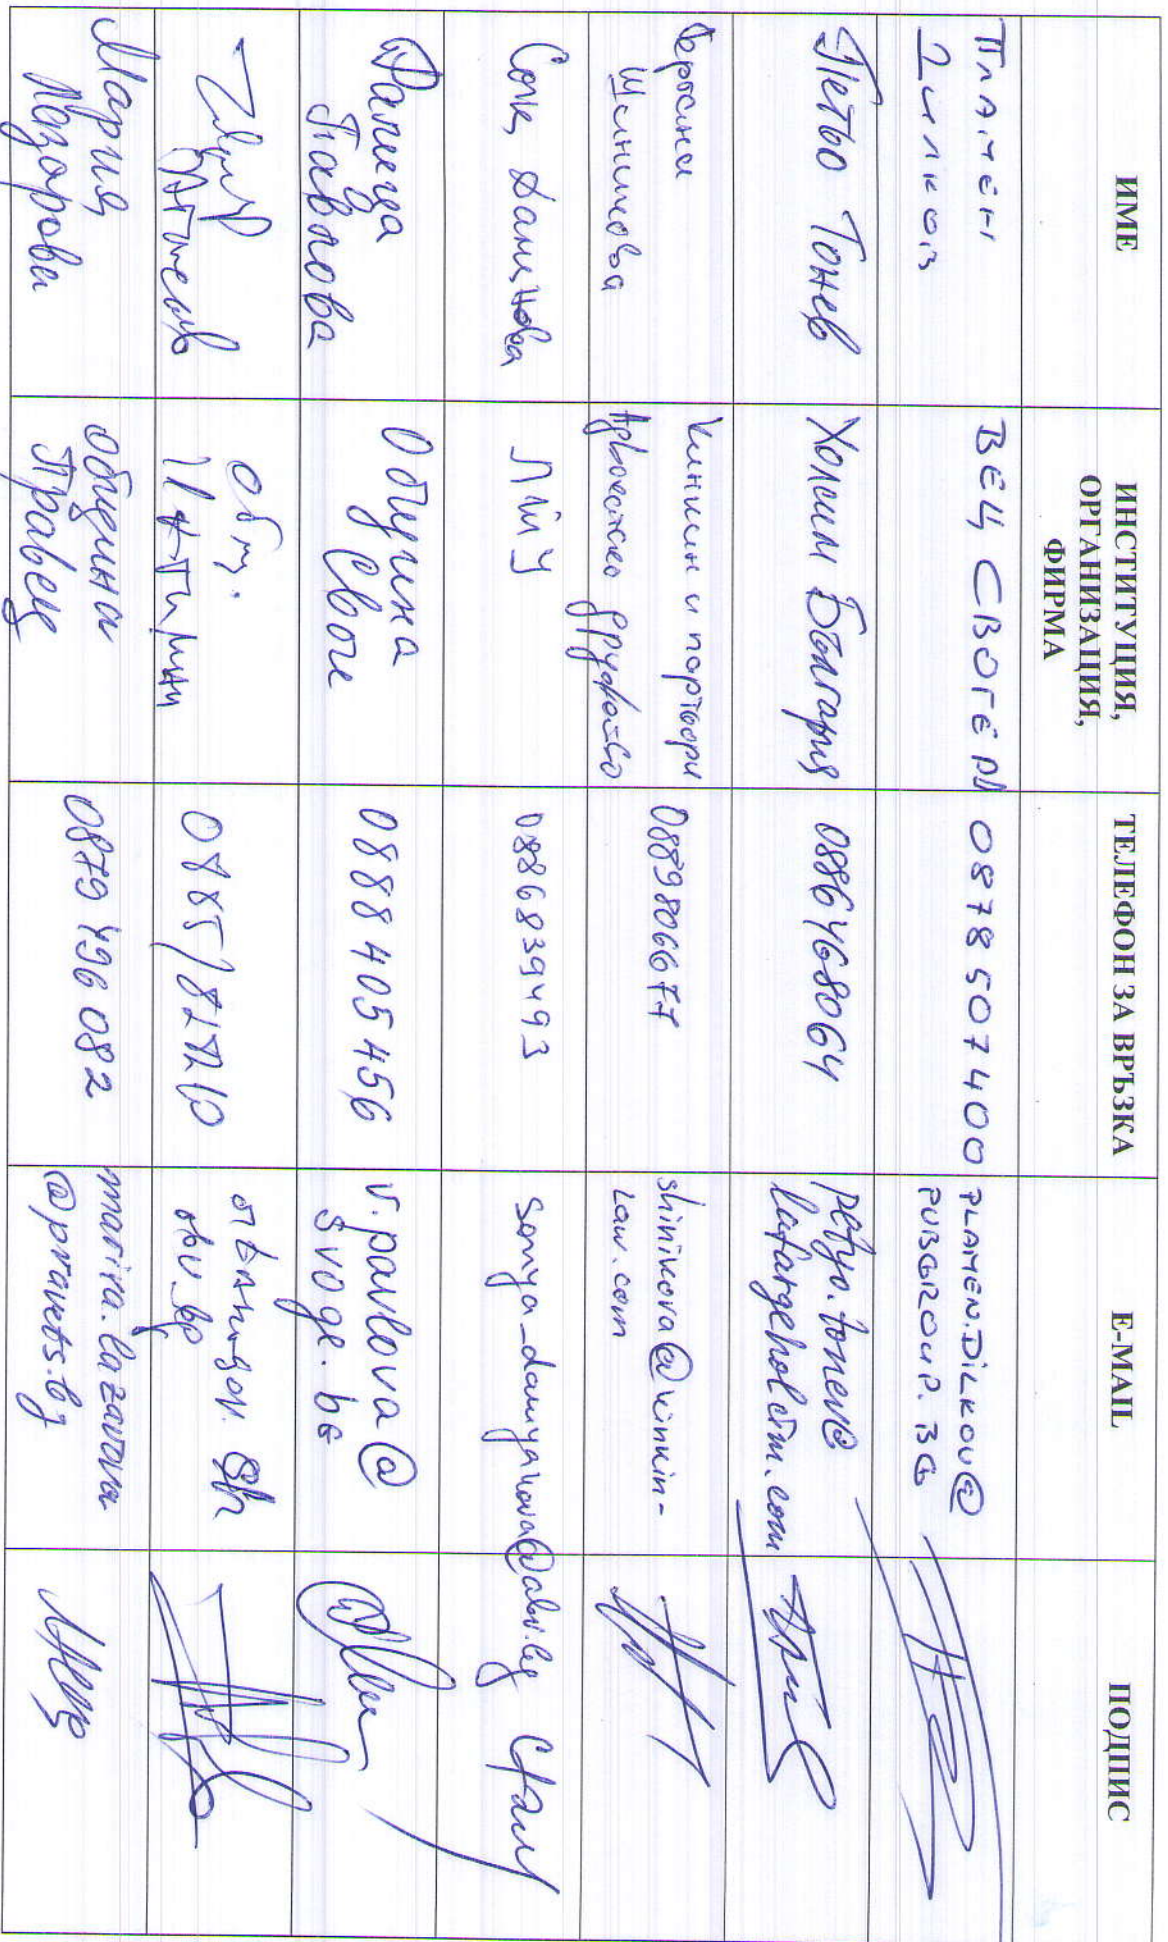 ИМЕ
ИНСТИТУЦИЯ,
ОРГАНИЗАЦИЯ,
ФИРМА
ТЕЛЕФОН ЗА ВРЪЗКА
E-MAIL
ПОДПИС
Пламен
Дилков
ВЕЦ СВОГЕ
0878 507400
PLAMEN.DILKOV@
PVBGROUP.BG
Петьо Тонев
Холсим България
0886468064
petyo.tonev@
lafargeholcim.com
Шиникова
Кинкин и партньори
Адвокатско дружество
0889806677
shinikova@kinkin-
law.com
Соня Дамянова
ПМУ
0886839493
sonya_damyanova@abv.bg
Павлова
Община
Своге
0888 405 456
v.pavlova@
svoge.bg
общ.
abv.bg
Мария
Лазарова
община
Правец
0879 496 082
marina.lazarova
@pravets.bg